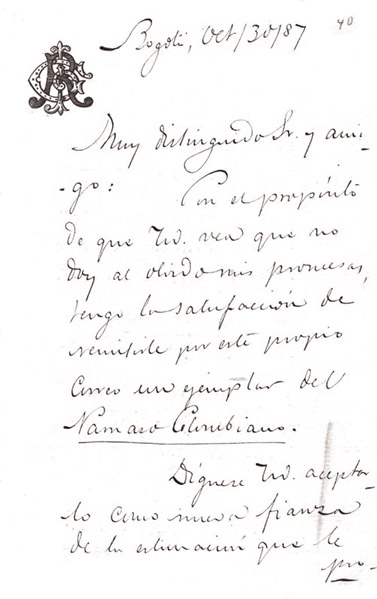 40
Bogotá, Oct/30/87
Muy distinguido Sr. y ami-
-go: Con el propósito
de que Ud. vea que no
doy al olvido mis promesas,
tengo la satisfacción de
remitirle por este propio
correo un ejemplar del
Parnaso Colombiano.
Dígnese Ud. aceptar-
lo como nueva fianza
de la estimación que le
pro-